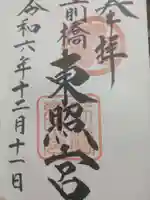 奉拝
前橋
東照宮
令和六年十二月十一日